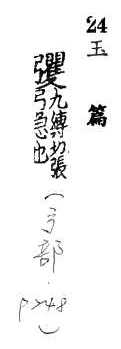 24
玉篇
彏九縛切張
弓急也
(弓部.
p248)